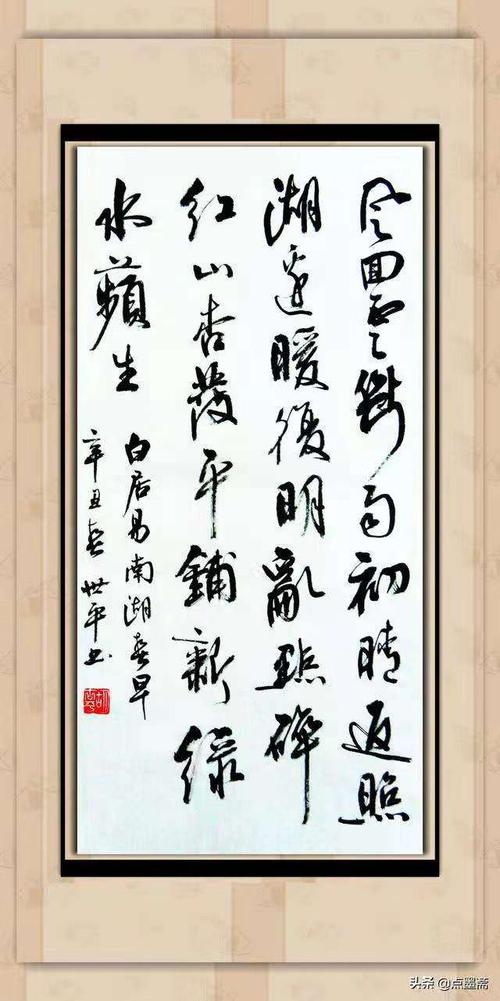 风回雲斷雨初晴返照
湖邊暖復明亂點碎
紅山杏發平鋪新綠
水蘋生
白居易南湖春早
辛丑春世平书
头条 @点墨斋